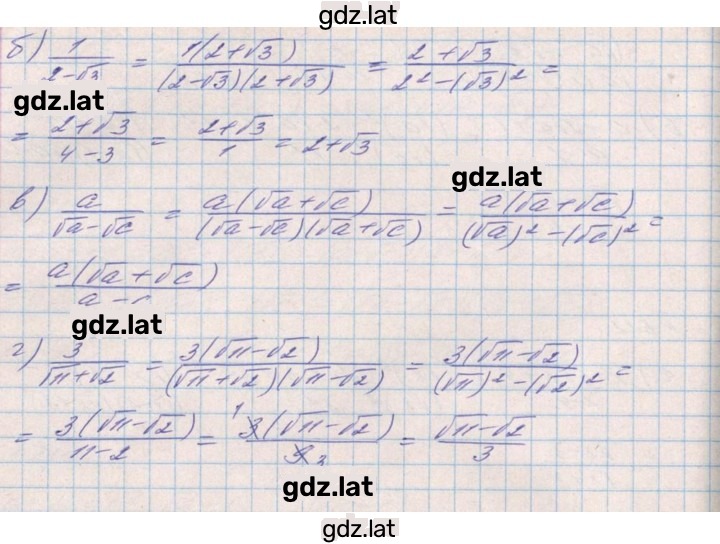 gdz.lat
б) 1/(2-√3) = 1(2+√3)/((2-√3)(2+√3)) = (2+√3)/(2²-(√3)²) =
gdz.lat
= (2+√3)/(4-3) = (2+√3)/1 = 2+√3
gdz.lat
в) a/(√a-√c) = a(√a+√c)/((√a-√c)(√a+√c)) = a(√a+√c)/((√a)²-(√c)²) =
= a(√a+√c)/(a-c)
gdz.lat
г) 3/(√11+√2) = 3(√11-√2)/((√11+√2)(√11-√2)) = 3(√11-√2)/((√11)²-(√2)²) =
= 3(√11-√2)/(11-2) = ¹3(√11-√2)/9₃ = (√11-√2)/3
gdz.lat
gdz.lat